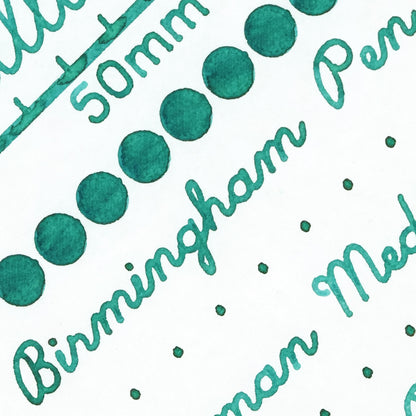 50mm
Birmingham Pen
man Med